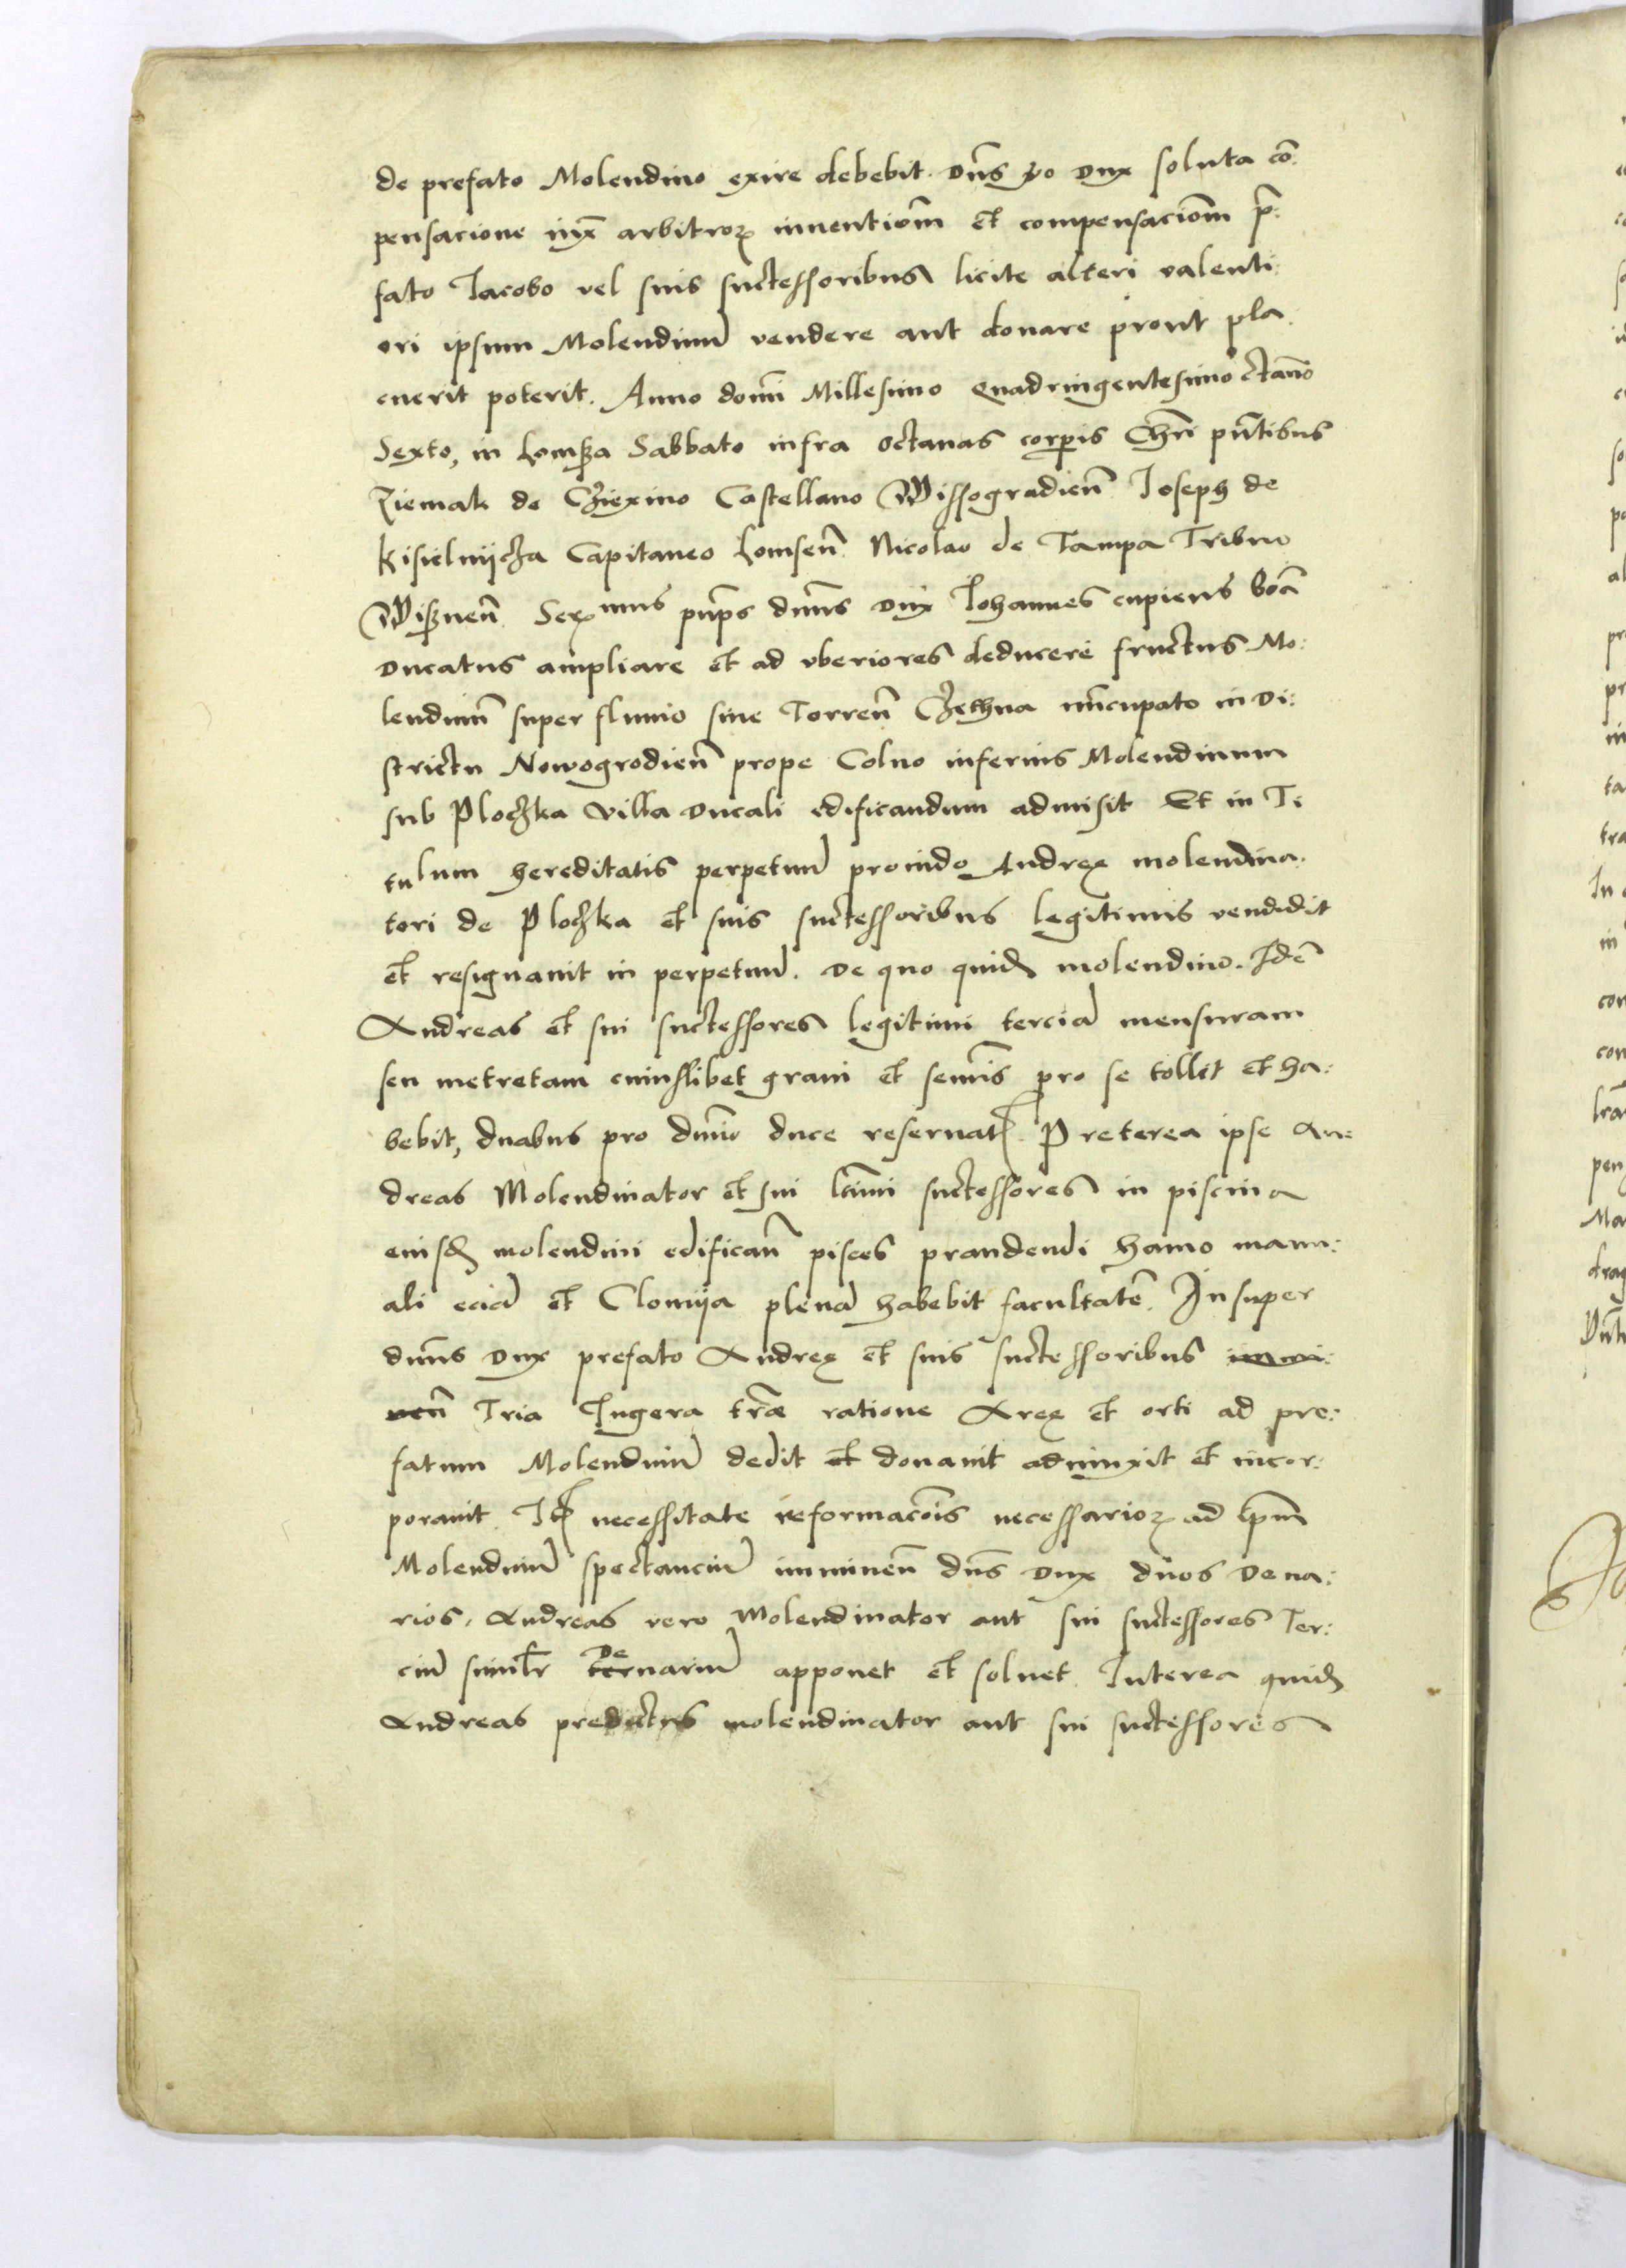 de prefato Molendino exire debebit. Dn̄s ꝟo Dux soluta cō:
pensacione iux̄ arbitroꝝ inuentiōm et compensaciōm p̄:
fato Iacobo vel suis successoribus licite alteri valenti:
ori ipsum Molendinū vendere aut donare prout pla:
cuerit poterit. Anno domī Millesimo Quadringentesimo octauo
Sexto, in Lomza Sabbato infra octauas corꝑis Chrī pn̄tibus
Ziemak de Cziexino Castellano Wissogradien̄ Ioseph de
Kisielnijcza Capitaneo Lomsen̄ Nicolao de Tampa Tribuno
Wiznen̄ Serᵐᵘˢ pn̄ps dnn̄s Dux Iohannes cupiens boā
Ducatus ampliare et ad vberiores deducere fructus Mo:
lendinū super fluuio siue Torren̄ Czethna nūcupato in Di:
strictu Nowogrodien̄ prope Colno inferius Molendinum
sub Ploczka Villa Ducali edificandum admisit Et in Ti
tulum hereditatis perpetuū prouido Andreę molendina:
tori de Ploczka et suis successoribus legitimis vendidit
et resignauit in perpetuū. De quo quidē molendino. Idē
Andreas et sui successores legitimi terciā mensuram
seu metretam cuiuslibet grani et semīs pro se tollet et ha:
bebit, duabus pro dnīo duce reseruatꝭ. Preterea ipse An:
dreas Molendinator et sui ltīmi successores in piscina
eiusdē molendini edifican̄ pisces prandendi hamo manu:
ali eciā et Clomija plenā habebit facultatē. Insuper
dnn̄s Dux prefato Andreę et suis successoribus immi:
nen̄ Tria Iugera trǣ ratione Areę et orti ad pre:
fatum Molendinū dedit et donauit adiunxit et incor:
porauit. Itē necessitate reformacōis necessarioꝝ ad ip̄m
Molendinū spectanciū imminen̄ dn̄s Dux duos Dena:
rios, Andreas vero Molendinator aut sui successores Ter:
ciū similr̄ Denariū apponet et soluet. Interea quidē
Andreas predictus molendinator aut sui successores